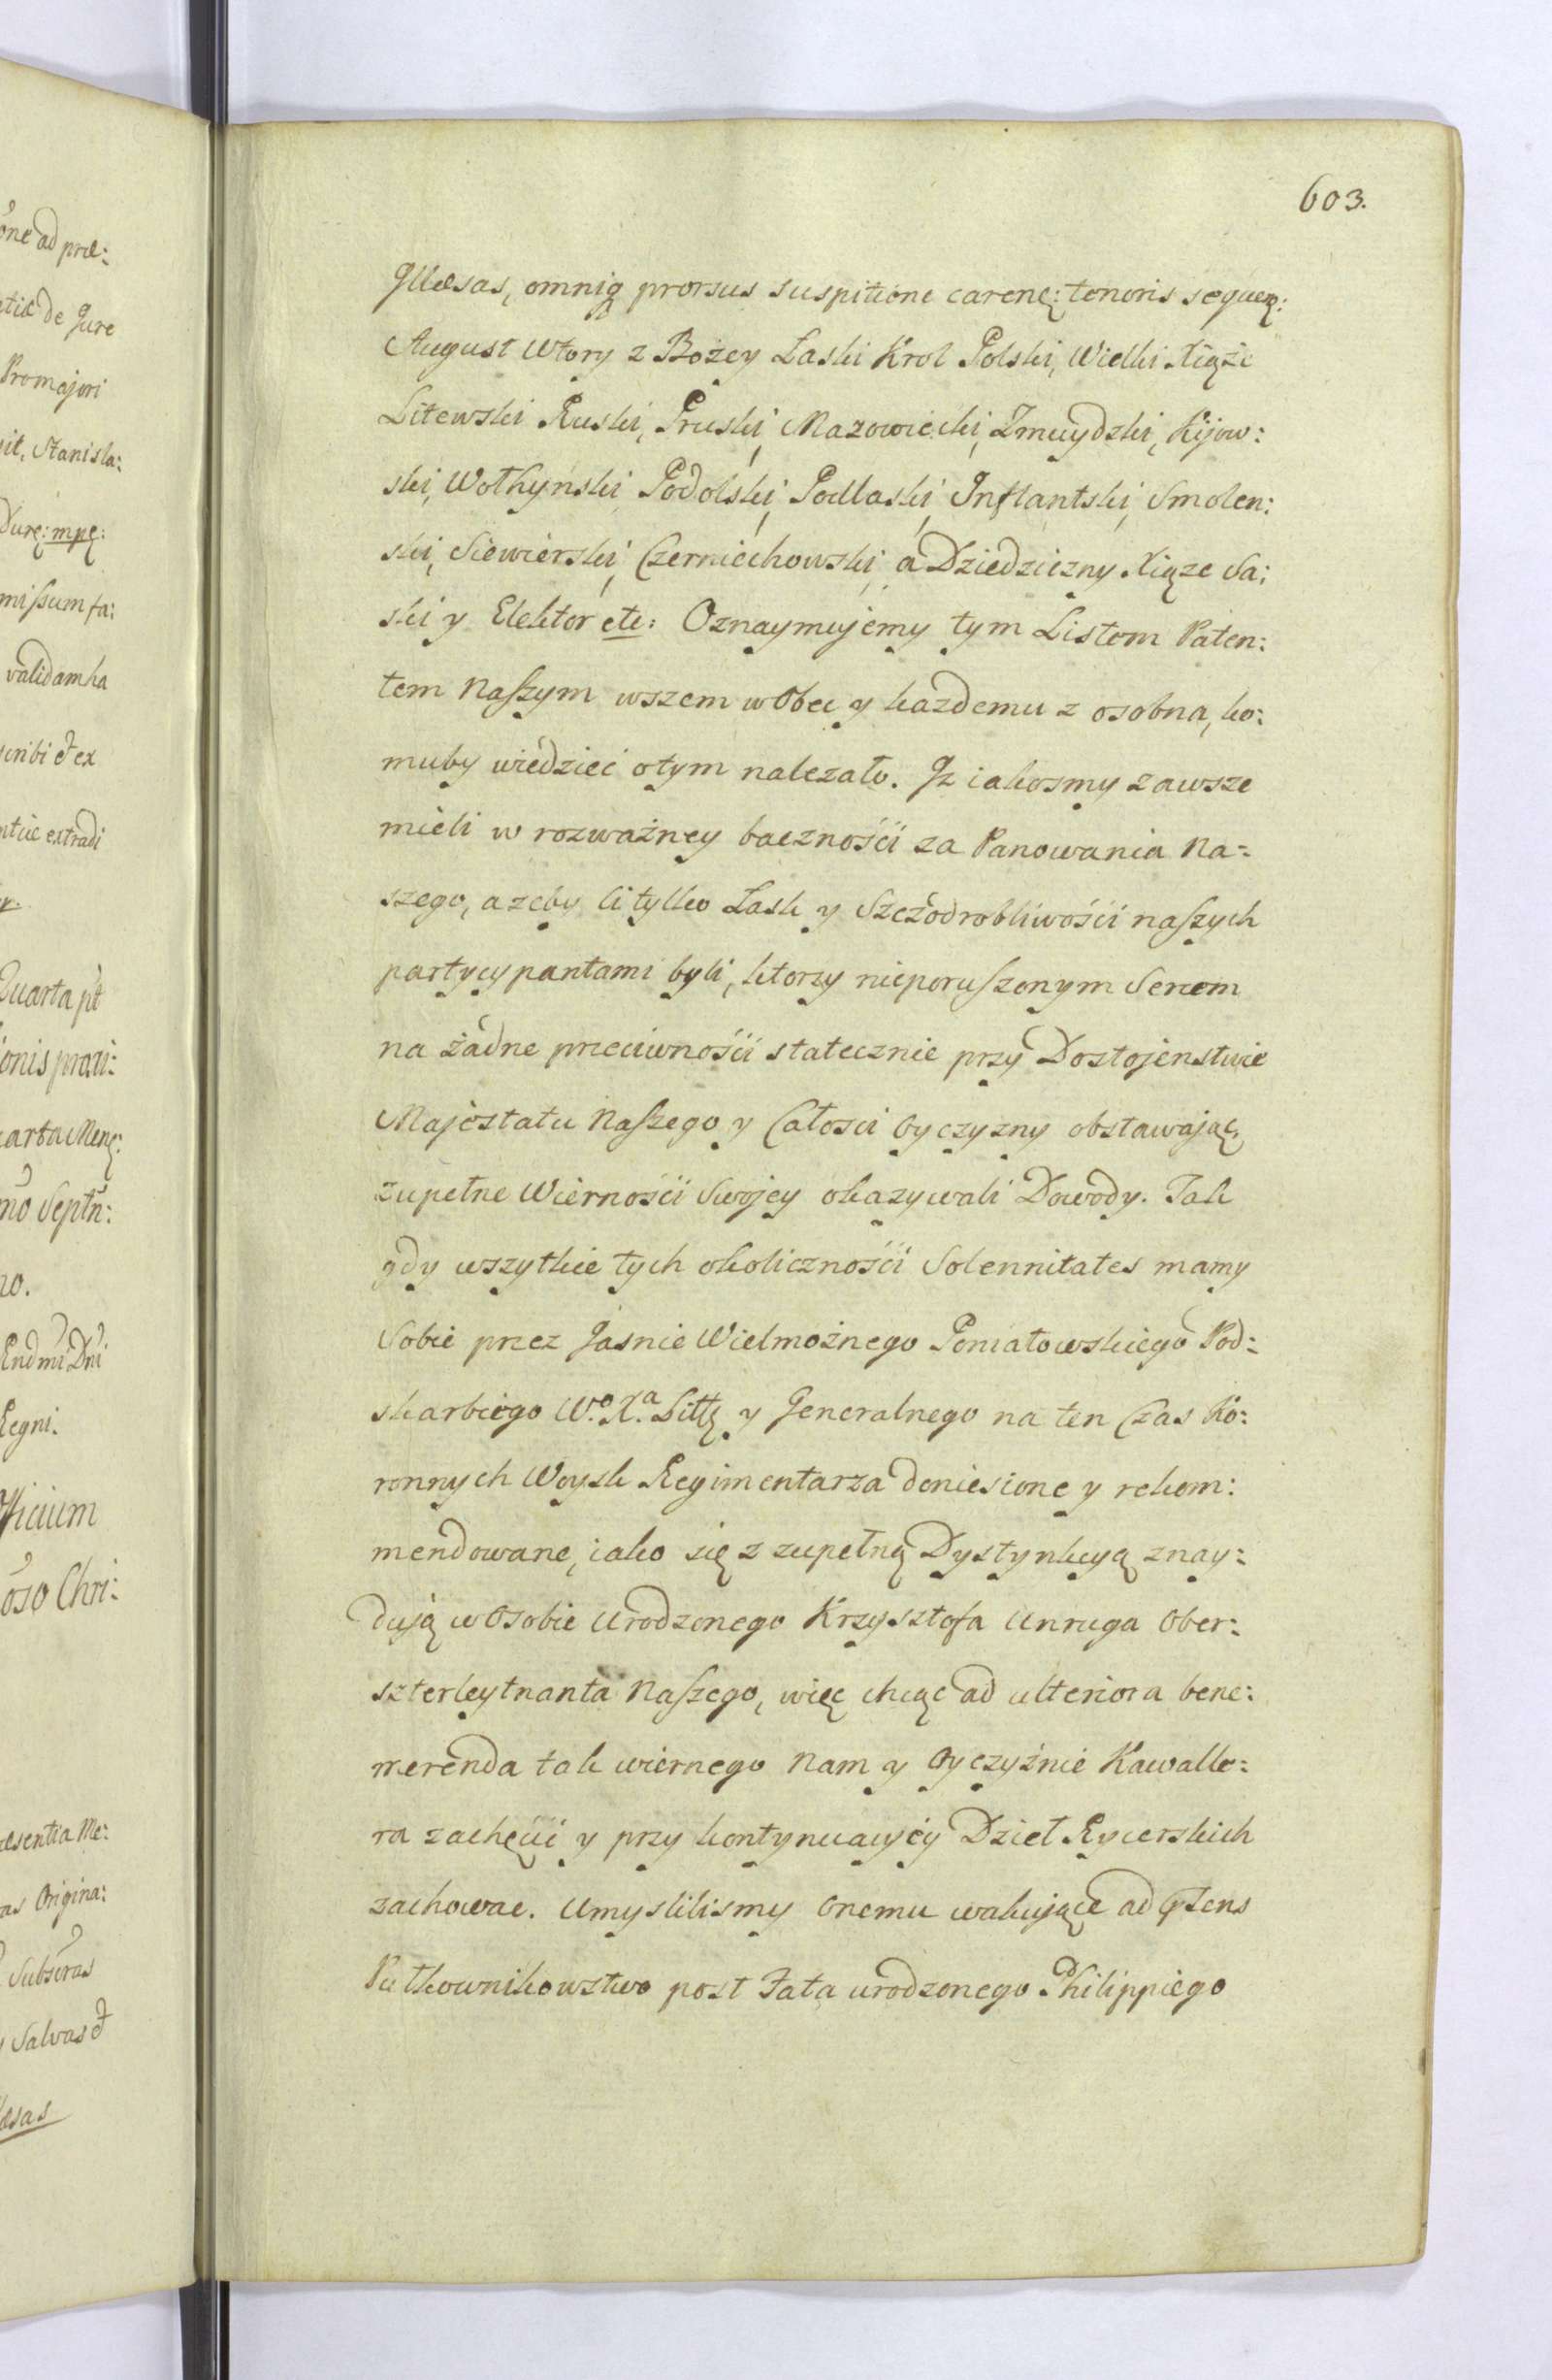 one ad præ:
etiæ de Jure
Promajori
it, Stanisla:
Durę: mpę:
missum fa:
validam ha
scribi et ex
ntiæ extradi
Quarta pt
ionis prari:
arta Menę:
no Septñ:
no.
Endmi Dni
Regni:
fficium
oso Chri:
æsentia Me:
as Origina:
Subscras
Salvas et
æsas
603.
Illæsas, omniq prorsus suspitione carenę: tenoris sequeę:
August Wtory z Bozey Laski Krol Polski, Wielki Xiąże
Litewski Ruski, Pruski, Mazowiecki, Zmuydzki, Kijow:
ski, Wołhyński, Podolski, Podlaski, Inflantski, Smolen:
ski, Siewierski, Czerniechowski, a Dziedziczny Xiąze Sa:
ski y Elektor etc: Oznaymujemy tym Listem Paten:
tem Naszym wszem wobec y kazdemu z osobna, ko:
muby wiedzieć otym nalezało. Iz iakosmy zawsze
mieli w rozważney bacznośći za Panowania Na:
szego, azeby li tylko Lask y Szczodrobliwośći naszych
partycypantami byli, ktorzy nieporuszonym Sercem
na żadne przeciwnośći statecznie przy Dostojenstwie
Majestatu Naszego y Całosci Oyczyzny obstawając,
zupełne Wiernośći Swojey okazywali Dowody. Jak
gdy wszytkie tych okolicznośći Solennitates mamy
Sobie przez Jasnie Wielmożnego Poniatowskiego Pod:
skarbiego W.o X.a Littę y Generalnego na ten Czas Ko:
ronnych Woysk Regimentarza doniesione y rekom:
mendowane, iako się z zupełną Dystynkcyą znay:
dują w Osobie Urodzonego Krzysztofa Unruga Ober:
szterleytnanta Naszego, więc chcąc ad ulteriora bene:
merenda tak wiernego Nam y Oyczyźnie Kawalle:
ra zachęćić y przy kontynuacyey Dzieł Rycerskich
zachowac. Umyslilismy onemu wakujące ad
Pułkownikowstwo post Fata urodzonego Philippiego